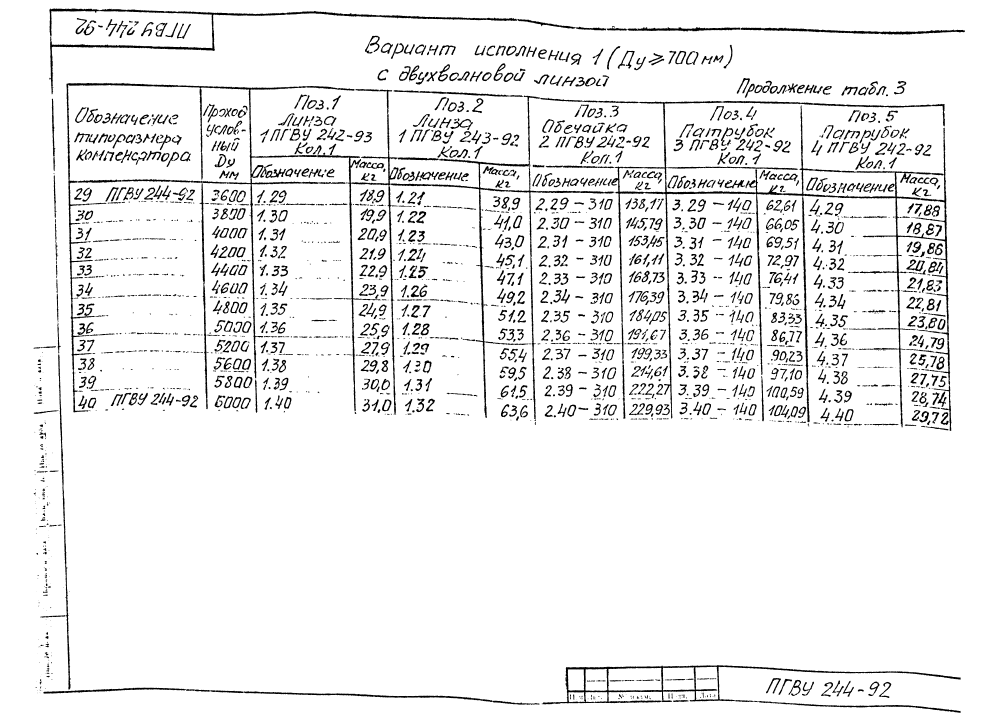 ПГВУ 244-92
Вариант исполнения 1 (Ду ≥ 700 мм)
с двухволновой линзой
Продолжение табл. 3
Обозначение типоразмера компенсатора | Проход условный Ду мм | Поз. 1 Линза 1 ПГВУ 242-93 Кол. 1 | Поз. 2 Линза 1 ПГВУ 243-92 Кол. 1 | Поз. 3 Обечайка 2 ПГВУ 242-92 Кол. 1 | Поз. 4 Патрубок 3 ПГВУ 242-92 Кол. 1 | Поз. 5 Патрубок 4 ПГВУ 242-92 Кол. 1
Обозначение | Масса, кг | Обозначение | Масса, кг | Обозначение | Масса, кг | Обозначение | Масса, кг | Обозначение | Масса, кг
29 ПГВУ 244-92 | 3600 | 1.29 | 18,9 | 1.21 | 38,9 | 2.29-310 | 138,17 | 3.29-140 | 62,61 | 4.29 | 17,88
30 | 3800 | 1.30 | 19,9 | 1.22 | 41,0 | 2.30-310 | 145,79 | 3.30-140 | 66,05 | 4.30 | 18,87
31 | 4000 | 1.31 | 20,9 | 1.23 | 43,0 | 2.31-310 | 153,45 | 3.31-140 | 69,51 | 4.31 | 19,86
32 | 4200 | 1.32 | 21,9 | 1.24 | 45,1 | 2.32-310 | 161,11 | 3.32-140 | 72,97 | 4.32 | 20,84
33 | 4400 | 1.33 | 22,9 | 1.25 | 47,1 | 2.33-310 | 168,73 | 3.33-140 | 76,41 | 4.33 | 21,83
34 | 4600 | 1.34 | 23,9 | 1.26 | 49,2 | 2.34-310 | 176,39 | 3.34-140 | 79,86 | 4.34 | 22,81
35 | 4800 | 1.35 | 24,9 | 1.27 | 51,2 | 2.35-310 | 184,05 | 3.35-140 | 83,33 | 4.35 | 23,80
36 | 5000 | 1.36 | 25,9 | 1.28 | 53,3 | 2.36-310 | 191,67 | 3.36-140 | 86,77 | 4.36 | 24,79
37 | 5200 | 1.37 | 27,9 | 1.29 | 55,4 | 2.37-310 | 199,33 | 3.37-140 | 90,23 | 4.37 | 25,78
38 | 5600 | 1.38 | 29,8 | 1.30 | 59,5 | 2.38-310 | 214,61 | 3.38-140 | 97,10 | 4.38 | 27,75
39 | 5800 | 1.39 | 30,0 | 1.31 | 61,5 | 2.39-310 | 222,27 | 3.39-140 | 100,59 | 4.39 | 28,74
40 ПГВУ 244-92 | 6000 | 1.40 | 31,0 | 1.32 | 63,6 | 2.40-310 | 229,93 | 3.40-140 | 104,09 | 4.40 | 29,72
ПГВУ 244-92